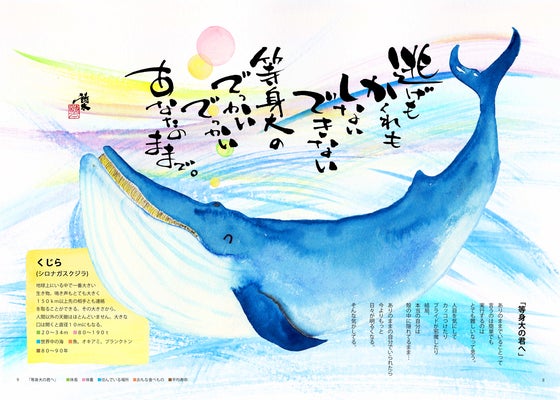 逃げも
かくれも
しない
できない
等身大の
でっかい
でっかい
あなたの
ままで。
くじら
(シロナガスクジラ)
地球上にいる中で一番大きい
生き物。鳴き声もとても大きく
150km以上先の相手とも連絡
を取ることができる。その大きさから、
人間以外の天敵はほとんどいません。大きな
口は開くと直径10mにもなる。
■20〜34m ■80〜190t
■世界中の海 ■魚、オキアミ、プランクトン
■80〜90年
「等身大の君へ」
ありのままでいることって
言うのは簡単でも
実行するのは
とても難しいなって思う
人目を気にして
カッコつけたり
プライドが邪魔したり
結局、
本当の自分は
殻の中に隠れてるまま…
ありのままの自分でいられたら
今よりもっと
日々が明るくなる
そんな気がしてる。
「等身大の君へ」 ■体長 ■体重 ■住んでいる場所 ■おもな食べもの ■平均寿命